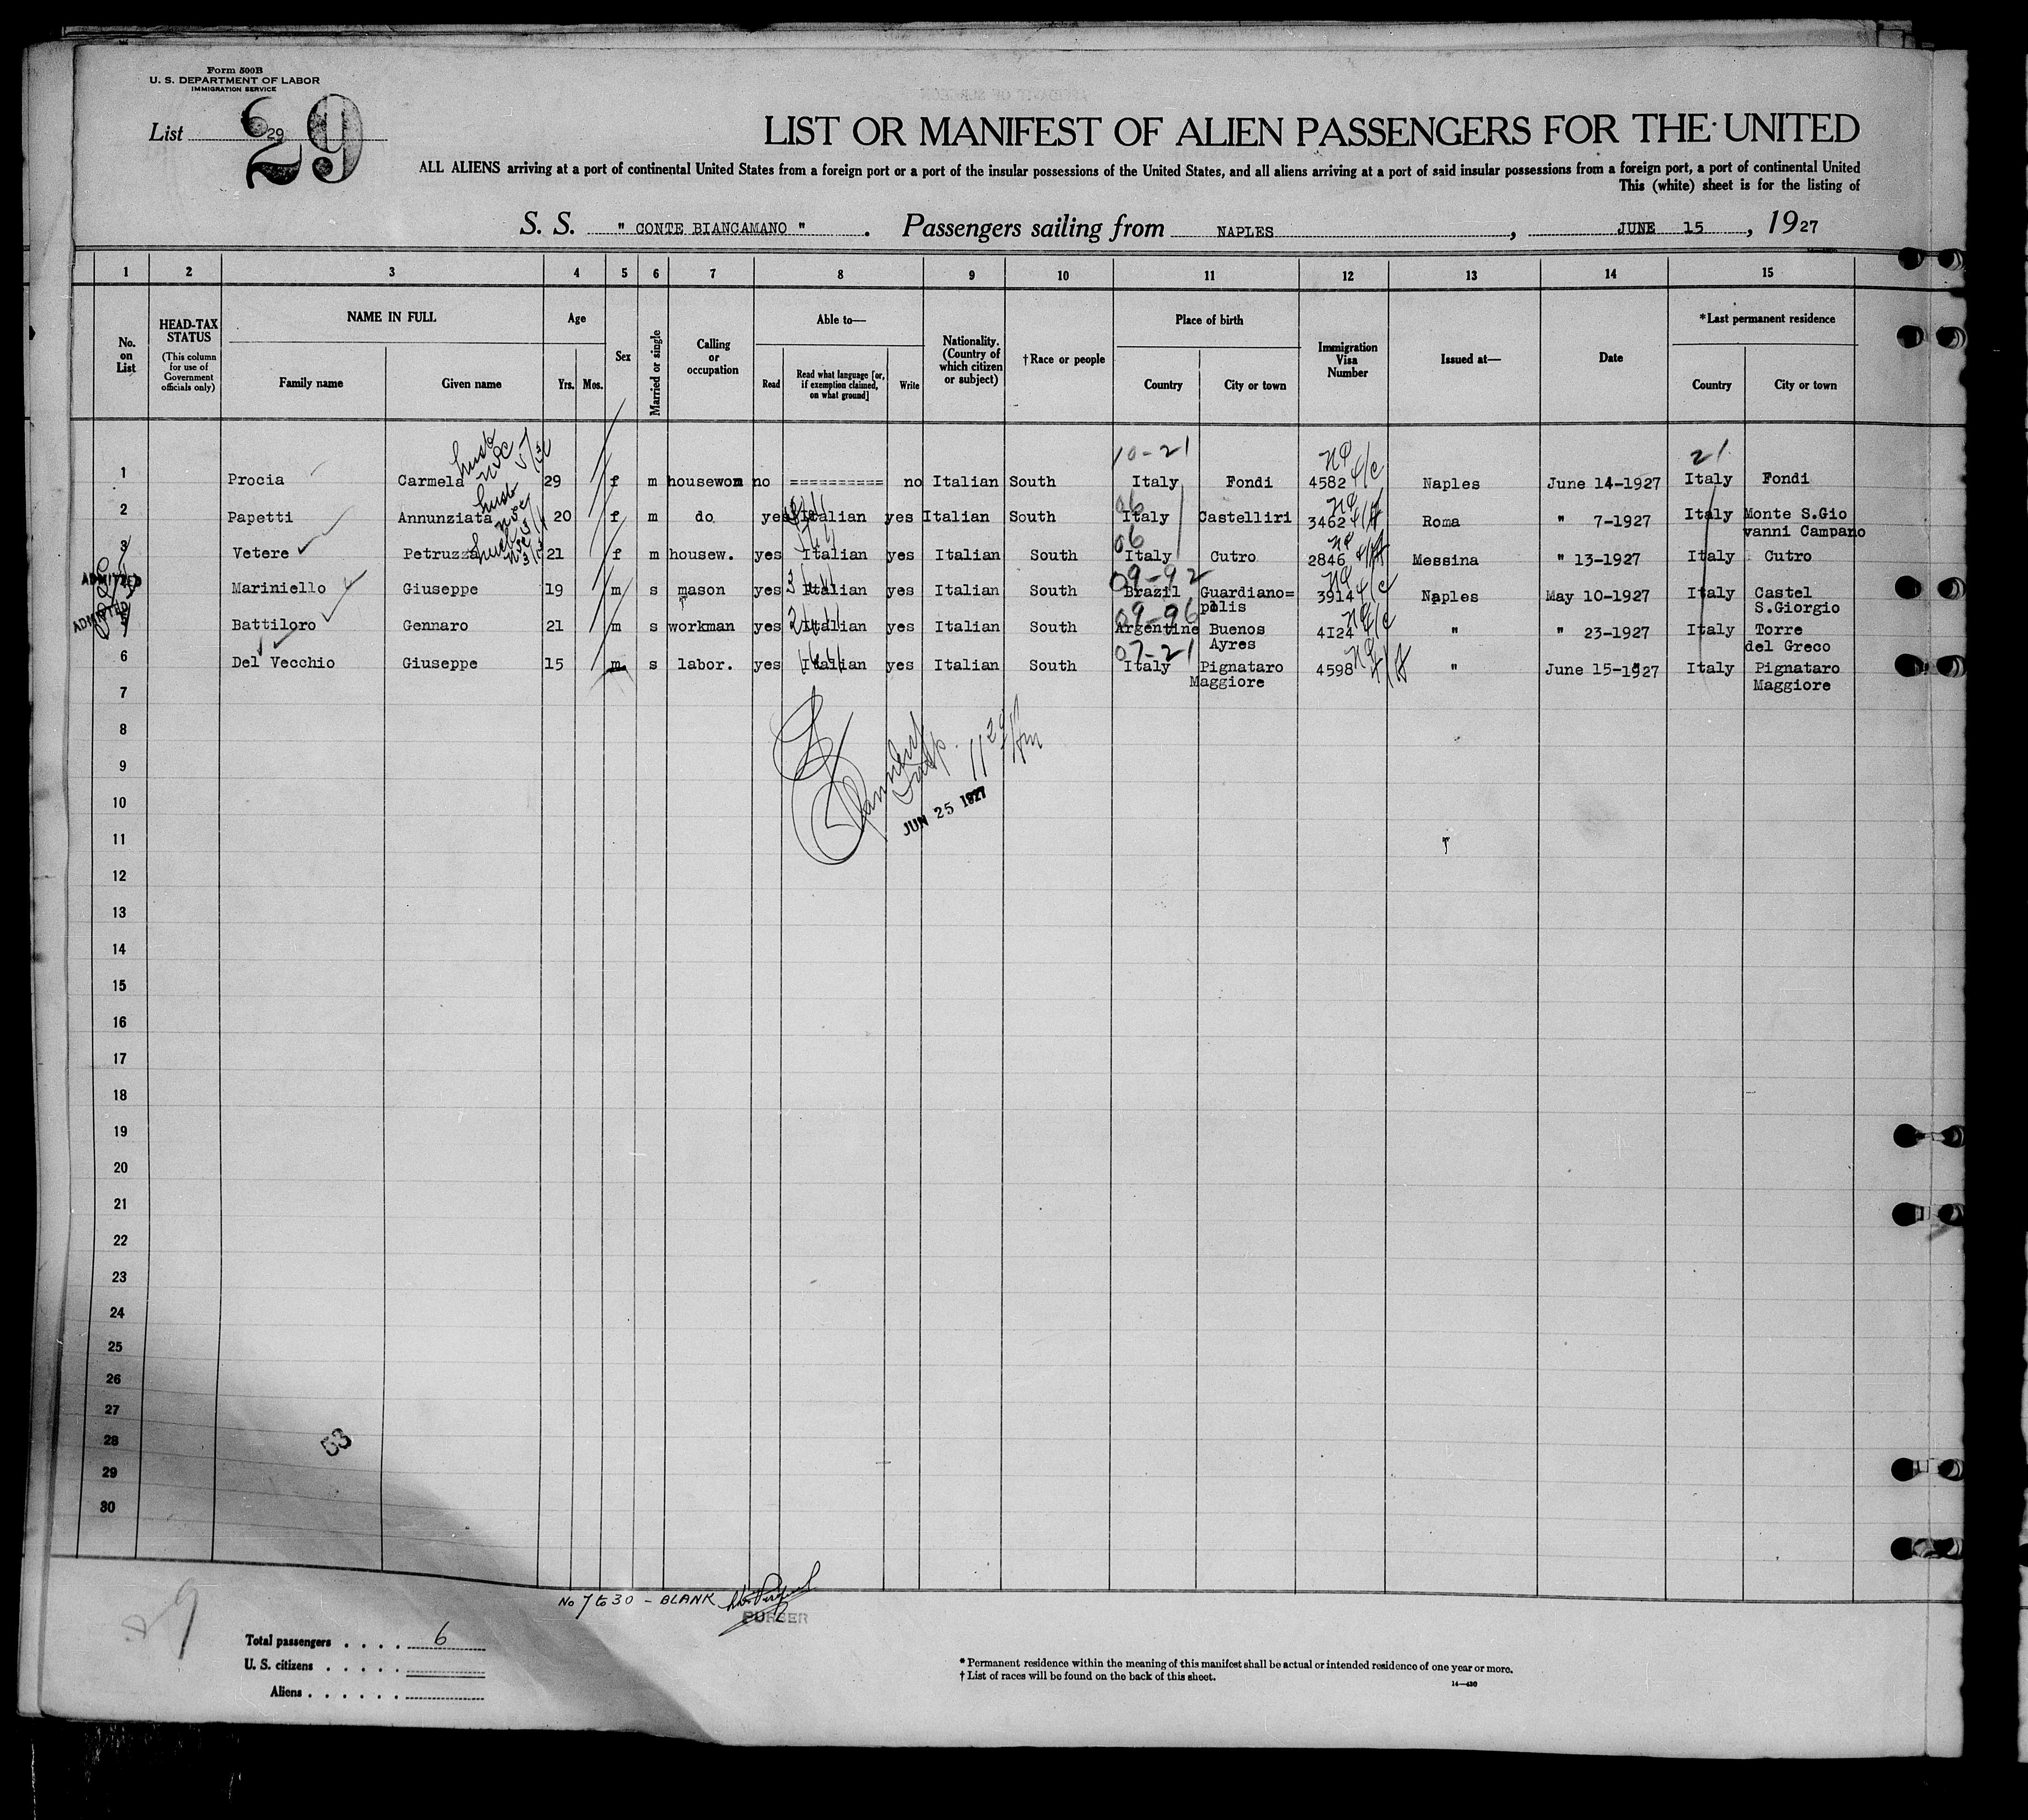 Form 500B
U. S. DEPARTMENT OF LABOR
IMMIGRATION SERVICE
List 29
29
LIST OR MANIFEST OF ALIEN PASSENGERS FOR THE UNITED
ALL ALIENS arriving at a port of continental United States from a foreign port or a port of the insular possessions of the United States, and all aliens arriving at a port of said insular possessions from a foreign port, a port of continental United
This (white) sheet is for the listing of
S. S. " CONTE BIANCAMANO " . Passengers sailing from NAPLES , JUNE 15 , 1927
1 2 3 4 5 6 7 8 9 10 11 12 13 14 15
No. on List
HEAD-TAX STATUS (This column for use of Government officials only)
NAME IN FULL
Family name Given name
Age
Yrs. Mos.
Sex
Married or single
Calling or occupation
Able to—
Read Read what language [or, if exemption claimed, on what ground] Write
Nationality. (Country of which citizen or subject)
†Race or people
Place of birth
Country City or town
Immigration Visa Number
Issued at—
Date
*Last permanent residence
Country City or town
10-21 21
1 Procia Carmela 29 f m housewom no ========== no Italian South Italy Fondi 4582 Naples June 14-1927 Italy Fondi
06
2 Papetti Annunziata 20 f m do yes Italian yes Italian South Italy Castelliri 3462 Roma " 7-1927 Italy Monte S.Gio
vanni Campano
06
3 Vetere Petruzza 21 f m housew. yes Italian yes Italian South Italy Cutro 2846 Messina " 13-1927 Italy Cutro
09-92
ADMITTED Mariniello Giuseppe 19 m s mason yes Italian yes Italian South Brazil Guardiano= 3914 Naples May 10-1927 Italy Castel
polis S.Giorgio
09-96
ADMITTED Battiloro Gennaro 21 m s workman yes Italian yes Italian South Argentine Buenos 4124 " " 23-1927 Italy Torre
Ayres del Greco
07-21
6 Del Vecchio Giuseppe 15 m s labor. yes Italian yes Italian South Italy Pignataro 4598 " June 15-1927 Italy Pignataro
Maggiore Maggiore
7
8
9
10
JUN 25 1927
11
12
13
14
15
16
17
18
19
20
21
22
23
24
25
26
27
28
53
29
30
No 7 to 30 - BLANK
PURSER
29
Total passengers . . . . 6
U. S. citizens . . . . .
Aliens . . . . . .
* Permanent residence within the meaning of this manifest shall be actual or intended residence of one year or more.
† List of races will be found on the back of this sheet.
14—430